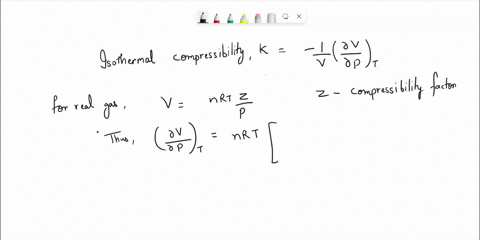 Isothermal compressibility, K = -1/V (∂V/∂P)_T
for real gas, V = nRT z/P z - compressibility factor
Thus, (∂V/∂P)_T = nRT [